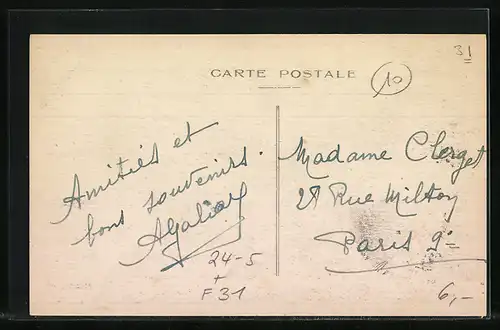 31
CARTE POSTALE
10
Amitiés et
bons souvenirs.
24-5
+
F31
Madame Clerget
Rue Milton
Paris 9e
6,-